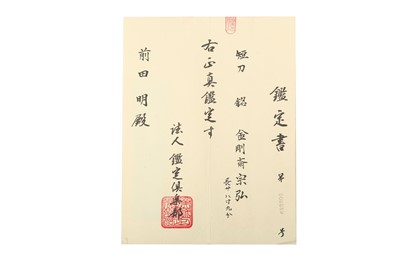 鑑定書 第 号
短刀 銘 金剛斎宗弘
長サ八寸九分
右正真鑑定す
法人 鑑定倶楽部
前田明殿